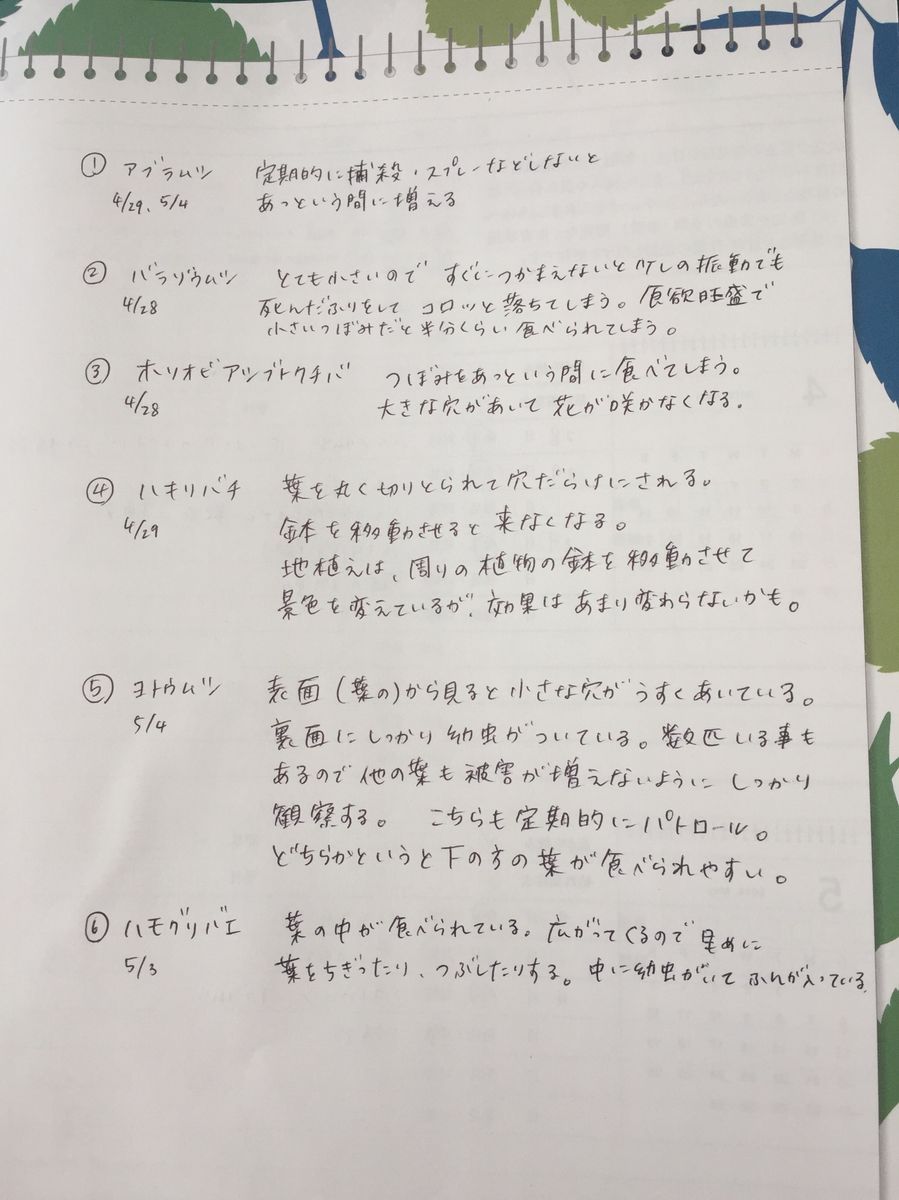 ① アブラムシ 定期的に捕殺・スプレーなどしないと
4/29、5/4 あっという間に増える
② バラゾウムシ とても小さいので すぐにつかまえないと 少しの振動でも
4/28 死んだふりをして コロッと落ちてしまう。食欲旺盛で
小さいつぼみだと半分くらい食べられてしまう。
③ ホソオビアシブトクチバ つぼみをあっという間に食べてしまう。
4/28 大きな穴があいて 花が咲かなくなる。
④ ハキリバチ 葉を丸く切りとられて穴だらけにされる。
4/29 鉢を移動させると来なくなる。
地植えは、周りの植物の鉢を移動させて
景色を変えているが、効果はあまり変わらないかも。
⑤ ヨトウムシ 表面(葉の)から見ると小さな穴がうすくあいている。
5/4 裏面にしっかり幼虫がついている。数匹いる事も
あるので他の葉も被害が増えないように しっかり
観察する。 こちらも定期的にパトロール。
どちらかというと下の方の葉が食べられやすい。
⑥ ハモグリバエ 葉の中が食べられている。広がってくるので早めに
5/3 葉をちぎったり、つぶしたりする。中に幼虫がいて ふんが入っている。
4
5